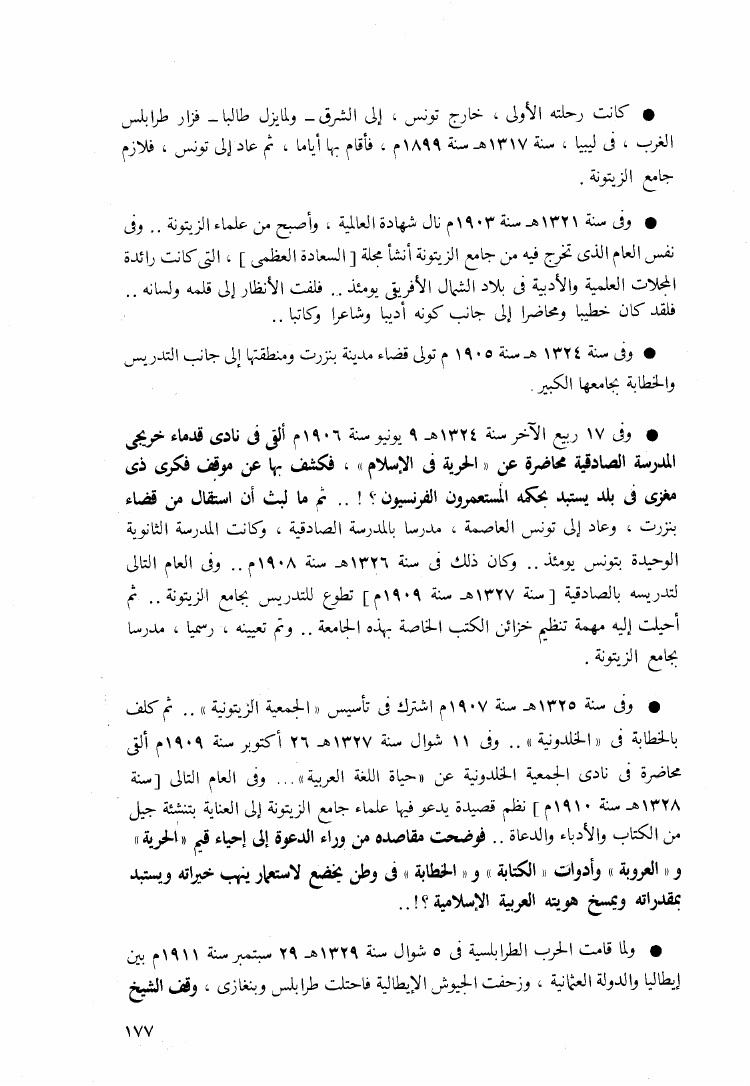 ● كانت رحلته الأولى ، خارج تونس ، إلى الشرق – ولمايزل طالبا – فزار طرابلس
الغرب ، فى ليبيا ، سنة ١٣١٧هـ سنة ١٨٩٩م ، فأقام بها أياما ، ثم عاد إلى تونس ، فلازم
جامع الزيتونة .
● وفى سنة ١٣٢١هـ سنة ١٩٠٣م نال شهادة العالمية ، وأصبح من علماء الزيتونة .. وفى
نفس العام الذى تخرج فيه من جامع الزيتونة أنشأ مجلة [ السعادة العظمى ] ، التى كانت رائدة
المجلات العلمية والأدبية فى بلاد الشمال الأفريقى يومئذ .. فلفت الأنظار إلى قلمه ولسانه ..
فلقد كان خطيبا ومحاضرا إلى جانب كونه أديبا وشاعرا وكاتبا ..
● وفى سنة ١٣٢٤ هـ سنة ١٩٠٥ م تولى قضاء مدينة بنزرت ومنطقتها إلى جانب التدريس
والخطابة بجامعها الكبير .
● وفى ١٧ ربيع الآخر سنة ١٣٢٤هـ ٩ يونيو سنة ١٩٠٦م ألقى فى نادى قدماء خريجى
المدرسة الصادقية محاضرة عن « الحرية فى الإسلام » ، فكشف بها عن موقف فكرى ذى
مغزى فى بلد يستبد بحكمه المستعمرون الفرنسيون ؟ ! .. ثم ما لبث أن استقال من قضاء
بنزرت ، وعاد إلى تونس العاصمة ، مدرسا بالمدرسة الصادقية ، وكانت المدرسة الثانوية
الوحيدة بتونس يومئذ .. وكان ذلك فى سنة ١٣٢٦هـ سنة ١٩٠٨م .. وفى العام التالى
لتدريسه بالصادقية [ سنة ١٣٢٧هـ سنة ١٩٠٩م ] تطوع للتدريس بجامع الزيتونة .. ثم
أحيلت إليه مهمة تنظيم خزائن الكتب الخاصة بهذه الجامعة .. وتم تعيينه ، رسميا ، مدرسا
بجامع الزيتونة .
● وفى سنة ١٣٢٥هـ سنة ١٩٠٧م اشترك فى تأسيس « الجمعية الزيتونية » .. ثم كلف
بالخطابة فى « الخلدونية » .. وفى ١١ شوال سنة ١٣٢٧هـ ٢٦ أكتوبر سنة ١٩٠٩م ألقى
محاضرة فى نادى الجمعية الخلدونية عن « حياة اللغة العربية » ... وفى العام التالى [ سنة
١٣٢٨هـ سنة ١٩١٠م ] نظم قصيدة يدعو فيها علماء جامع الزيتونة إلى العناية بتنشئة جيل
من الكتاب والأدباء والدعاة .. فوضحت مقاصده من وراء الدعوة إلى إحياء قيم « الحرية »
و « العروبة » وأدوات « الكتابة » و « الخطابة » فى وطن يخضع لاستعمار ينهب خيراته ويستبد
بمقدراته ويمسخ هويته العربية الإسلامية ؟! ..
● ولما قامت الحرب الطرابلسية فى ٥ شوال سنة ١٣٢٩هـ ٢٩ سبتمبر سنة ١٩١١م بين
إيطاليا والدولة العثمانية ، وزحفت الجيوش الإيطالية فاحتلت طرابلس وبنغازى ، وقف الشيخ
١٧٧